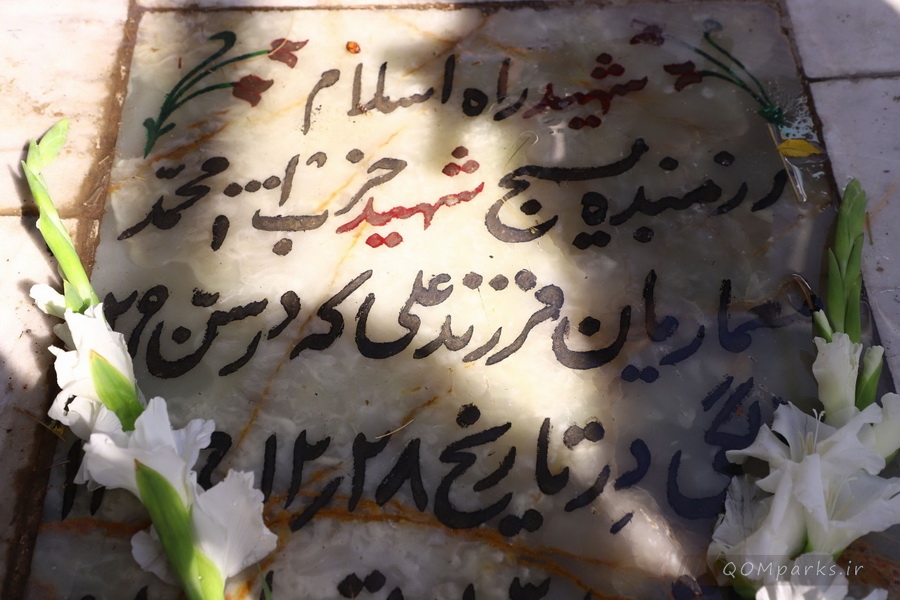 شهید راه اسلام
رزمنده بسیج شهید حزب ا... محمّد
معماریان فرزند علی که در سنّ
گی در تاریخ ۲۸ر۱۲ر
QOMparks.ir